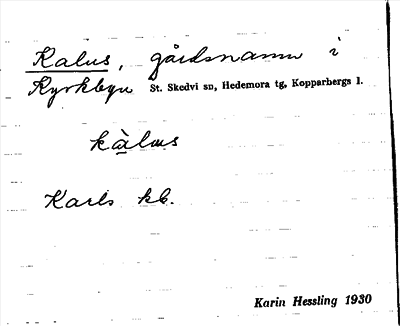 Kalus, gårdsnamn i
Kyrkbyn St. Skedvi sn, Hedemora tg, Kopparbergs l.
kà̲lus
Karls kb.
Karin Hessling 1930